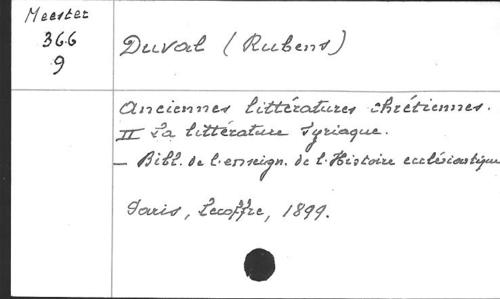 Meester
366
9
Duval (Rubens)
Anciennes littératures chrétiennes.
II La littérature Syriaque.
— Bibl. de l'enseign. de l'Histoire ecclésiastique
Paris, Lecoffre, 1899.